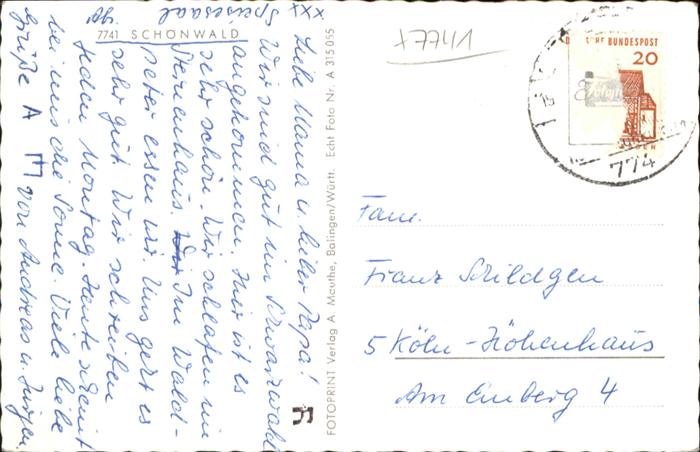 xxx Speisesaal
7741 SCHÖNWALD
Liebe Mama u. lieber Papa!
Wir sind gut im Schwarzwald
angekommen. Hier ist es
sehr schön. Wir schlafen im
Sternenhaus. Im Wald-
peter essen wir. Uns geht es
sehr gut. Wir schreiben
jeden Montag. Heute scheint
bei uns die Sonne. Viele liebe
Grüße A von Andreas u. Jürgen.
FOTOPRINT Verlag A. Mauthe, Balingen/Württ. Echt Foto Nr. A 315 055
R
DEUTSCHE BUNDESPOST
20
774
Fam.
Franz Schildgen
5 Köln-Höhenhaus
Am Emberg 4